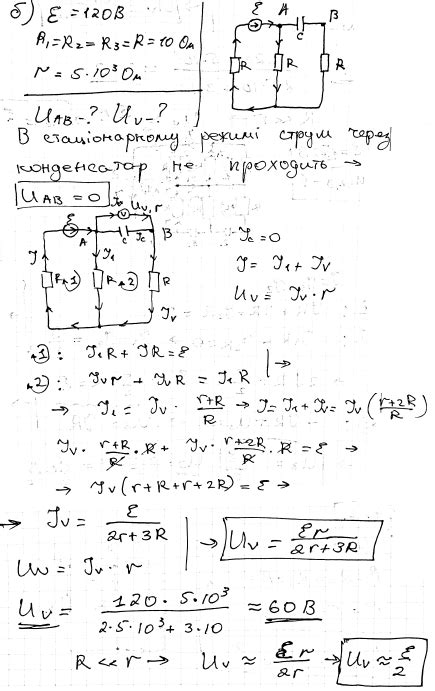 б) ℰ = 120 В
R₁ = R₂ = R₃ = R = 10 Ом
r = 5·10³ Ом
U_AB - ? U_V - ?
ℰ A C B
R R R
В стаціонарному режимі струм через
конденсатор не проходить →
U_AB = 0
V U_V, r
ℰ A C J_c B
J R 1) J₁ R 2) R J_V
J_c = 0
J = J₁ + J_V
U_V = J_V · r
1): J₁R + JR = ℰ
2): J_V r + J_V R = J₁R | →
→ J₁ = J_V · (r+R)/R → J = J₁ + J_V = J_V ((r+2R)/R)
J_V · (r+R)/R · R + J_V · (r+2R)/R · R = ℰ →
→ J_V (r + R + r + 2R) = ℰ →
→ J_V = ℰ/(2r+3R) | → U_V = ℰr/(2r+3R)
U_V = J_V · r
U_V = (120 · 5·10³)/(2·5·10³ + 3·10) ≈ 60 В
R << r → U_V ≈ ℰr/2r → U_V ≈ ℰ/2